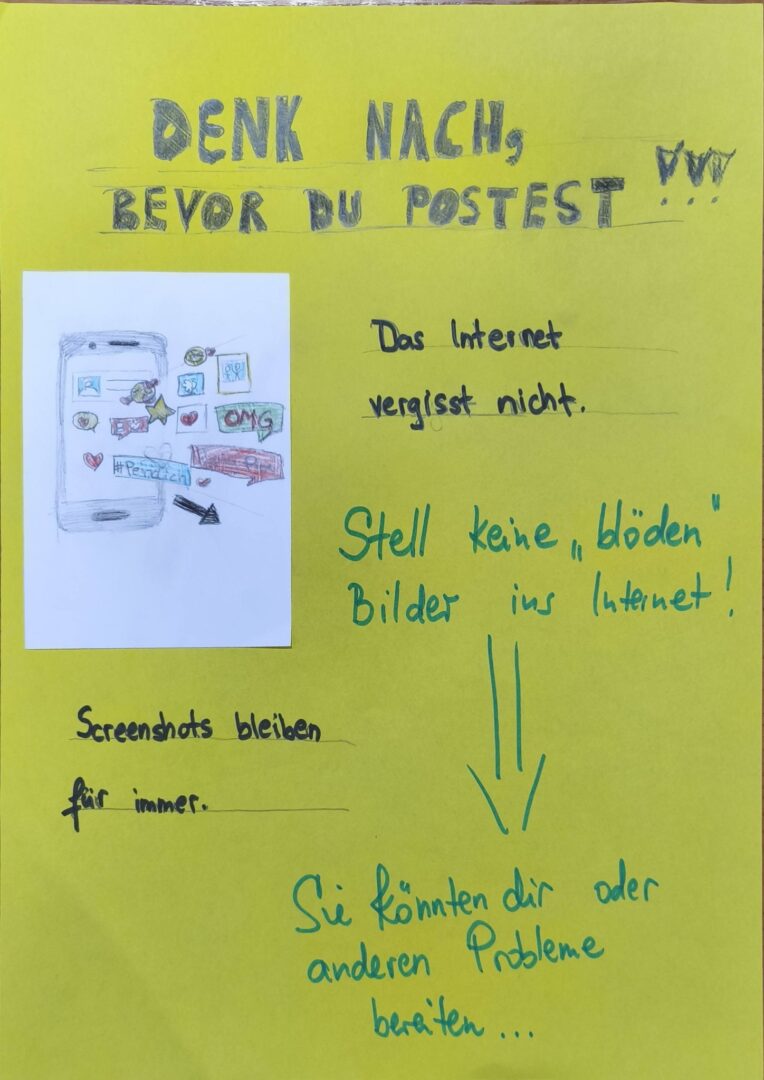 DENK NACH,
BEVOR DU POSTEST !!!
Das Internet
vergisst nicht.
OMG
#Peinlich
Stell keine „blöden"
Bilder ins Internet!
Screenshots bleiben
für immer.
Sie könnten dir oder
anderen Probleme
bereiten...